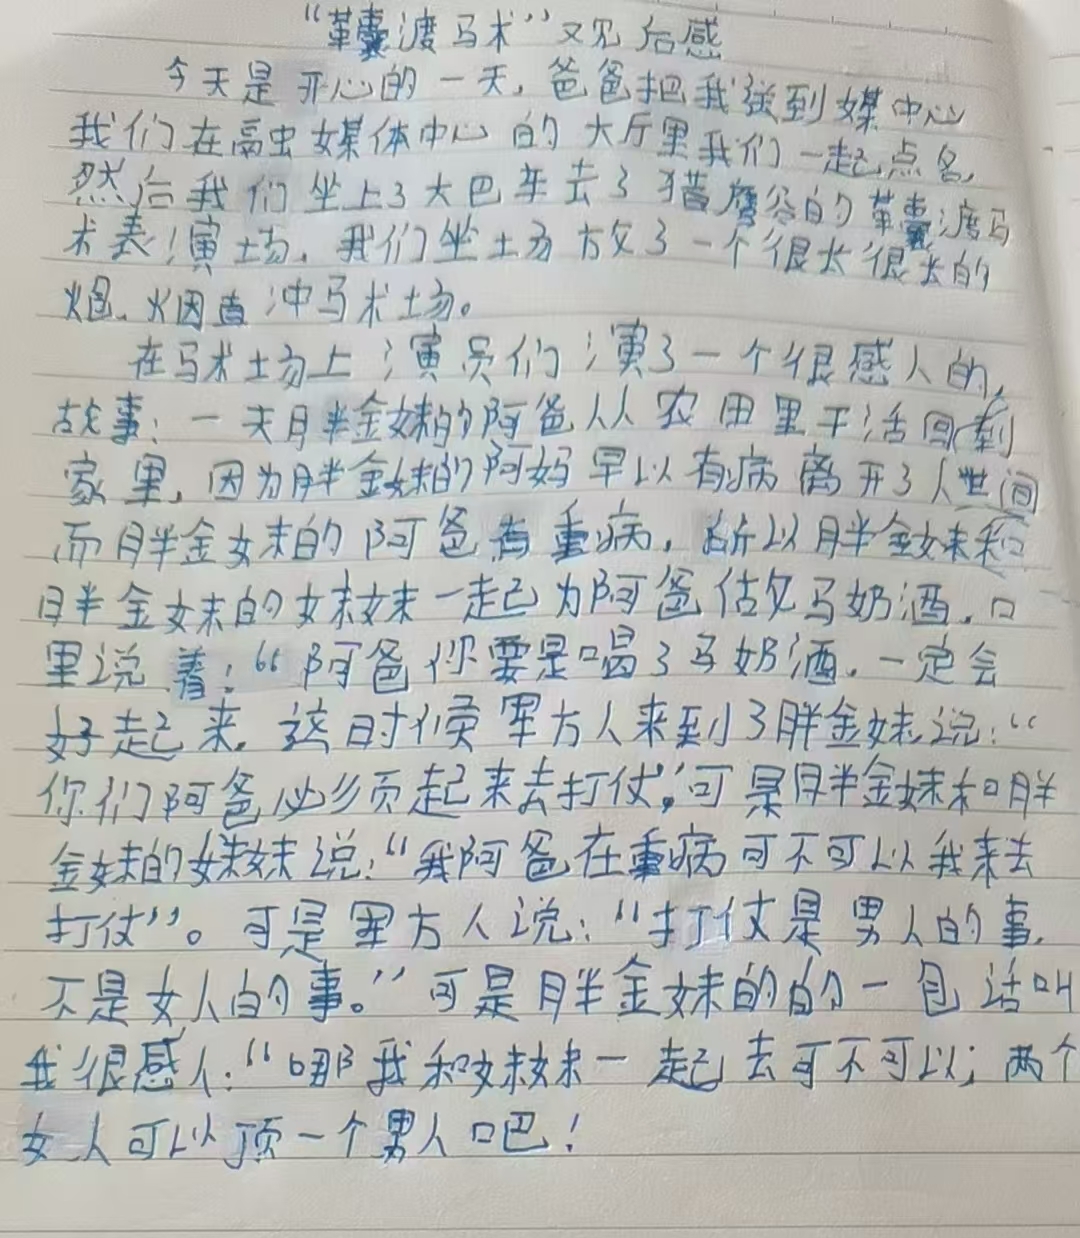 “革囊渡马术”观后感
今天是开心的一天，爸爸把我送到媒中心
我们在高虫媒体中心的大厅里我们一起点名，
然后我们坐上了大巴车去了猎鹰谷的革囊渡马
术表演场，我们坐土场放了一个很大很大的
烟，烟直冲马术场。
在马术场上演员们演了一个很感人的，
故事：一天胖金妹的阿爸从农田里干活回到
家里，因为胖金妹的阿妈早以有病离开了人世间
而胖金妹的阿爸有重病，所以胖金妹和
胖金妹的妹妹一起为阿爸估夂马奶酒，口
里说着：“阿爸你要是喝了马奶酒，一定会
好起来，这时候军方人来到了胖金妹说：“
你们阿爸必须起来去打仗，”可是胖金妹和胖
金妹的妹妹说：“我阿爸在重病可不可以我来去
打仗”。可是军方人说：“打仗是男人的事，
不是女人的事。”可是胖金妹的的一句话叫
我很感人：“哪我和妹妹一起去可不可以；两个
女人可以顶一个男人吧！